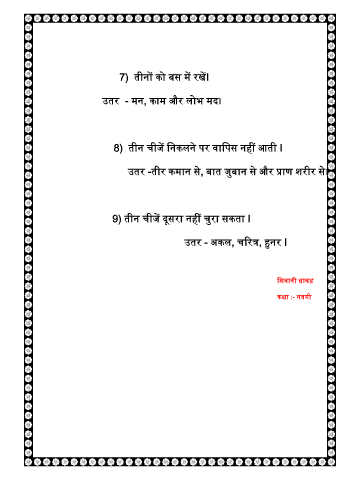 7) तीनों को बस में रखें।
उतर - मन, काम और लोभ मद।
8) तीन चीजें निकलने पर वापिस नहीं आती ।
उतर -तीर कमान से, बात जुबान से और प्राण शरीर से।
9) तीन चीजें दूसरा नहीं चुरा सकता ।
उतर - अकल, चरित्र, हुनर ।
शिवानी
कक्षा :- नवमी